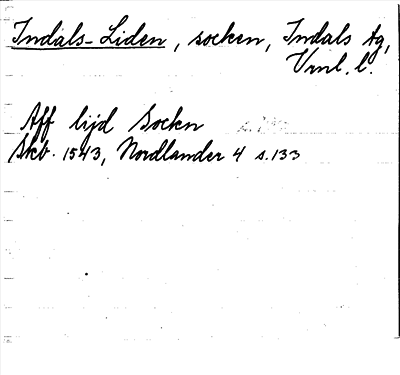 Indals-Liden, socken, Indals tg,
Vrnl. l.
Aff lijd Socken
Skb. 1543, Nordlander 4 s. 133